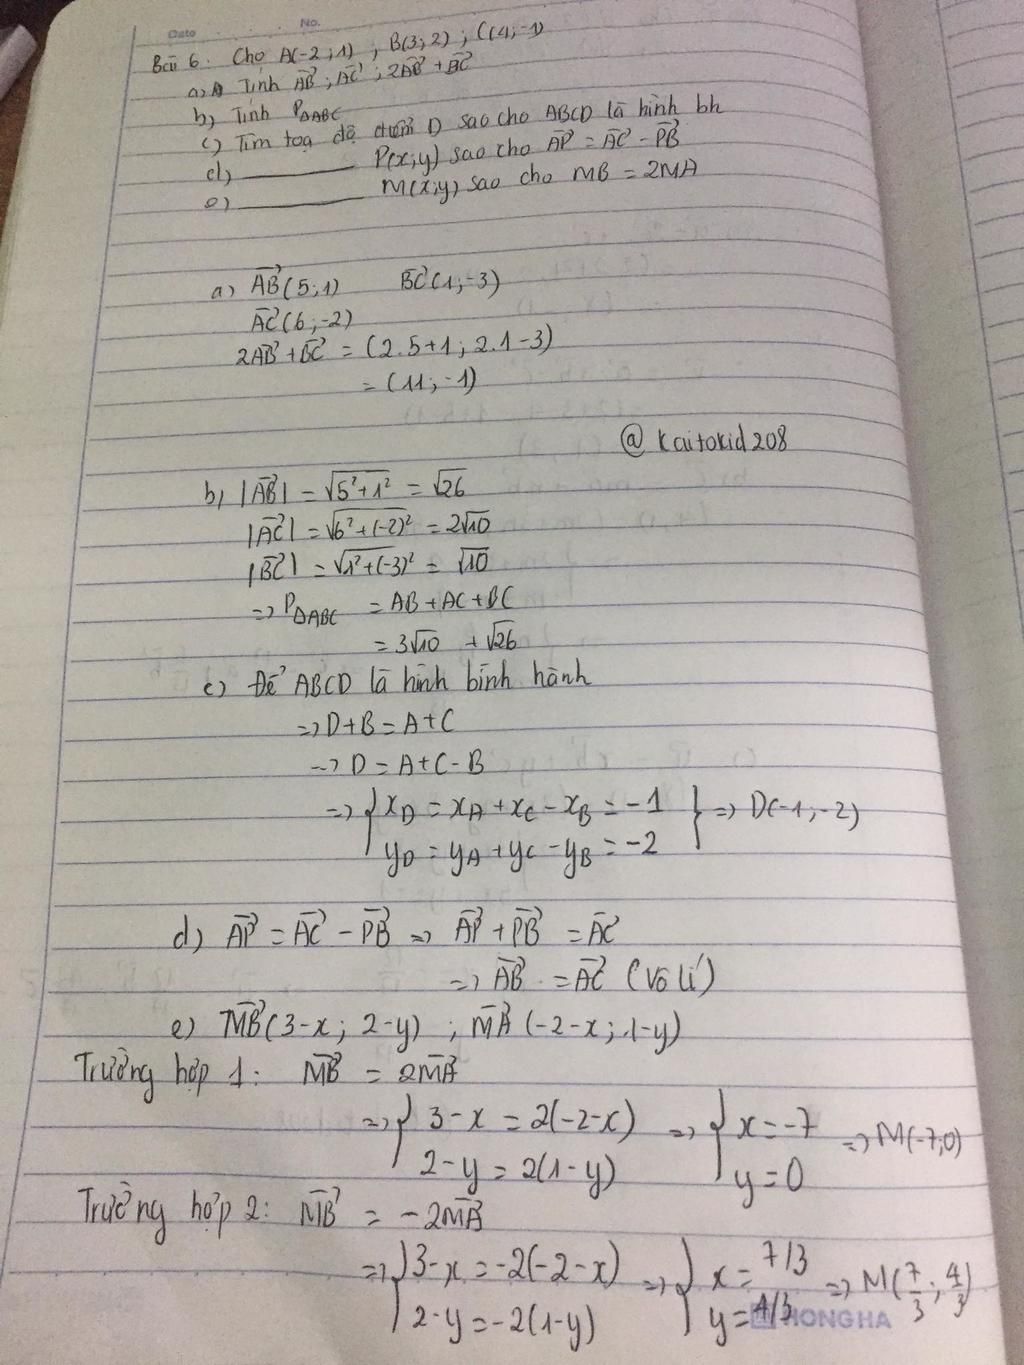 Date No.
Bài 6. Cho A(-2;1) ; B(3;2) ; C(4;-1)
a) Tính AB→; AC→; 2AB→ + BC→
b) Tính P△ABC
c) Tìm toạ độ điểm D sao cho ABCD là hình bh
d) ______ P(x;y) sao cho AP→ = AC→ - PB→
e) ______ M(x;y) sao cho MB = 2MA
a) AB→(5;1) BC→(1;-3)
AC→(6;-2)
2AB→ + BC→ = (2.5+1; 2.1-3)
= (11;-1)
@kaitokid208
b) |AB→| = √(5²+1²) = √26
|AC→| = √(6²+(-2)²) = 2√10
|BC→| = √(1²+(-3)²) = √10
=> P△ABC = AB + AC + BC
= 3√10 + √26
c) Để ABCD là hình bình hành
=> D+B = A+C
=> D = A+C-B
=> { xD = xA + xC - xB = -1
yD = yA + yC - yB = -2 } => D(-1;-2)
d) AP→ = AC→ - PB→ => AP→ + PB→ = AC→
=> AB→ = AC→ (Vô lí)
e) MB→(3-x; 2-y) ; MA→(-2-x; 1-y)
Trường hợp 1: MB→ = 2MA→
=> { 3-x = 2(-2-x) => { x = -7 => M(-7;0)
2-y = 2(1-y) y = 0
Trường hợp 2: MB→ = -2MA→
=> { 3-x = -2(-2-x) => { x = 7/3 => M(7/3; 4/3)
2-y = -2(1-y) y = 4/3
HONG HA